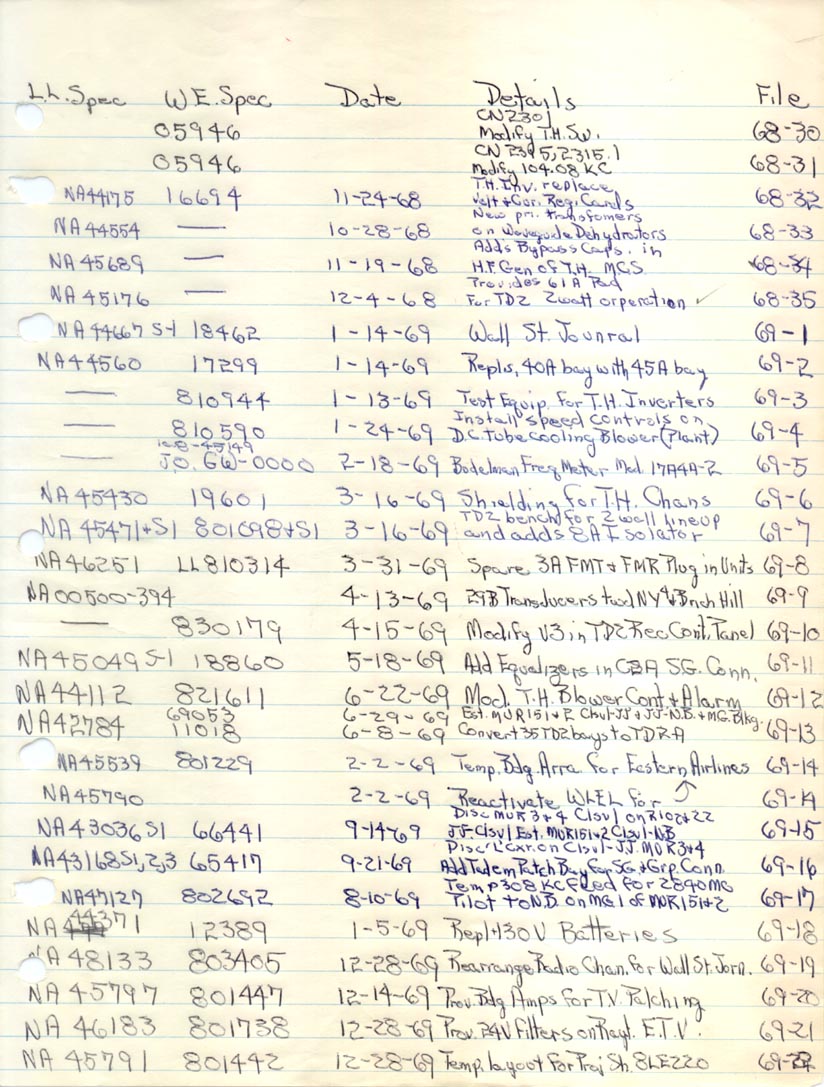 L.L. Spec W.E. Spec Date Details File
CN 2301
05946 Modify T.H. Sw. 68-30
CN 2395, 2315.1
05946 Modify 104.08 KC 68-31
T.H. Inv. replace
NA44175 16694 11-24-68 Volt + Cur. Reg. Cards 68-32
New pri. transfomers
NA 44554 — 10-28-68 on Waveguide Dehydrators 68-33
Adds Bypass Caps. in
NA 45689 — 11-19-68 H.F. Gen of T.H. MGS 68-34
Provides 61A Pad
NA 45176 — 12-4-68 For TD2 2watt orperation ✓ 68-35
NA44667 S-1 18462 1-14-69 Wall St. Jounral 69-1
NA44560 17299 1-14-69 Repls. 40A bay with 45A bay 69-2
— 810944 1-13-69 Test Equip. for T.H. Inverters 69-3
Install speed controls on
— 810590 1-24-69 D.C. tube cooling Blower (Plant) 69-4
168-45149
— J.O. GW-0000 2-18-69 Bodelman Freq Meter Mod. 17A4A-2 69-5
NA 45430 19601 3-16-69 Shielding for T.H. Chans 69-6
TD2 bench for 2wall lineup
NA 45471+S1 801098+S1 3-16-69 and adds 8A Isolator 69-7
NA46251 LL810314 3-31-69 Spare 3A FMT + FMR Plug in Units 69-8
NA00500-394 4-13-69 29B Transducers twd NY4 + Brnch Hill 69-9
— 830179 4-15-69 Modify V3 in TD2 Rec Cont. Panel 69-10
NA45049 S-1 18860 5-18-69 Add Equalizers in CBA S.G. Conn. 69-11
NA44112 821611 6-22-69 Mod. T.H. Blower Cont + Alarm 69-12
69053 6-29-69 Est. MUR151+2 Clsvl-JJ + JJ-N.B. + MG. Blkg.
NA42784 11018 6-8-69 Convert 35 TD2 bays to TD2A 69-13
NA45539 801229 2-2-69 Temp. Bdg. Arra. for Eastern Airlines 69-14
NA45790 2-2-69 Reactivate WLEL for 69-14
Disc MUR 3+4 Clsvl on R102+22
NA43036 S1 66441 9-14-69 JJ-Clsvl Est. MUR151+2 Clsvl-N.B 69-15
Disc 'L' Cxr. on Clsvl-JJ. MUR3+4
NA43168 S1,2,3 65417 9-21-69 Add Tadem Patch Bay for SG. + Grp. Conn 69-16
Temp 308 KC feed for 2840 MG
NA47127 802692 8-10-69 Pilot to N.B. on MG1 of MUR151+2 69-17
NA 44371 12389 1-5-69 Repl +130V Batteries 69-18
NA 48133 803405 12-28-69 Rearrange Radio Chan. for Wall St. Jorn. 69-19
NA 45797 801447 12-14-69 Prov. Bdg Amps for T.V. Patching 69-20
NA 46183 801738 12-28-69 Prov. 24V filters on Rayt. E.T.V. 69-21
NA 45791 801442 12-28-69 Temp. layout for Proj Sh. 8LE220 69-22